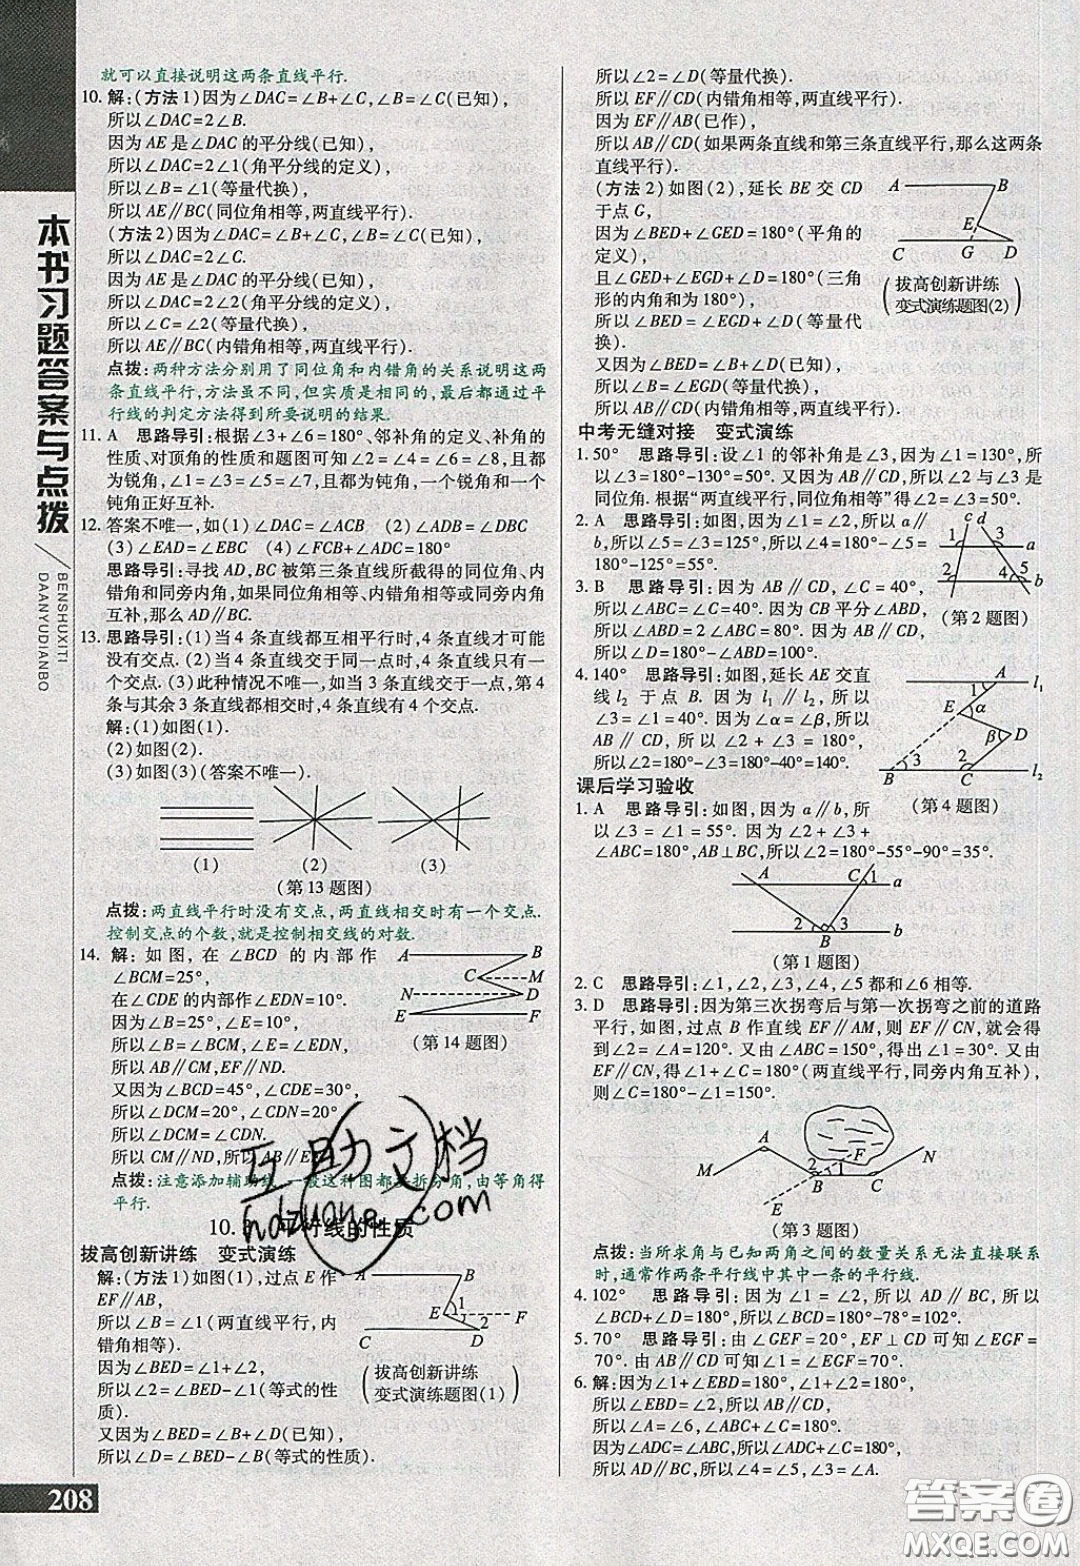 就可以直接说明这两条直线平行.
10. 解:(方法1)因为∠DAC=∠B+∠C,∠B=∠C(已知),
所以∠DAC=2∠B.
因为 AE 是∠DAC 的平分线(已知),
所以∠DAC=2∠1(角平分线的定义),
所以∠B=∠1(等量代换),
所以 AE∥BC(同位角相等,两直线平行).
(方法2)因为∠DAC=∠B+∠C,∠B=∠C(已知),
所以∠DAC=2∠C.
因为 AE 是∠DAC 的平分线(已知),
所以∠DAC=2∠2(角平分线的定义),
所以∠C=∠2(等量代换),
所以 AE∥BC(内错角相等,两直线平行).
点拨:两种方法分别用了同位角和内错角的关系说明这两
条直线平行,方法虽不同,但实质是相同的,最后都通过平
行线的判定方法得到所要说明的结果.
11. A 思路导引:根据∠3+∠6=180°、邻补角的定义、补角的
性质、对顶角的性质和题图可知∠2=∠4=∠6=∠8,且都
为锐角,∠1=∠3=∠5=∠7,且都为钝角,一个锐角和一个
钝角正好互补.
12. 答案不唯一,如(1)∠DAC=∠ACB (2)∠ADB=∠DBC
(3)∠EAD=∠EBC (4)∠FCB+∠DAC=180°
思路导引:寻找 AD,BC 被第三条直线所截得的同位角、内
错角和同旁内角,如果同位角相等、内错角相等或同旁内角
互补,那么 AD∥BC.
13. 思路导引:(1)当 4 条直线都互相平行时,4 条直线才可能
没有交点.(2)当 4 条直线交于同一点时,4 条直线只有一
个交点.(3)此种情况不唯一,如当 3 条直线交于一点,第 4
条与其余 3 条直线都相交时,4 条直线有 4 个交点.
解:(1)如图(1).
(2)如图(2).
(3)如图(3)(答案不唯一).
(1) (2) (3)
(第 13 题图)
点拨:两直线平行时没有交点,两直线相交时有一个交点.
控制交点的个数,就是控制相交线的对数.
14. 解:如图,在∠BCD 的内部作
∠BCM=25°,
在∠CDE 的内部作∠EDN=10°.
因为∠B=25°,∠E=10°,
所以∠B=∠BCM,∠E=∠EDN,
所以 AB∥CM,EF∥ND.
又因为∠BCD=45°,∠CDE=30°,
所以∠DCM=20°,∠CDN=20°
所以∠DCM=∠CDN.
所以 CM∥ND,所以 AB∥EF.
A B C M N D E F
(第 14 题图)
点拨:注意添加辅助线,一般这种图都要拆分角,由等角得
平行.
平行线的性质
拔高创新讲练 变式演练
解:(方法1)如图(1),过点 E 作
EF∥AB,
所以∠B=∠1(两直线平行,内
错角相等).
因为∠BED=∠1+∠2,
所以∠2=∠BED-∠1(等式的性
质).
又因为∠BED=∠B+∠D(已知),
所以∠D=∠BED-∠B(等式的性质).
A B E 1 F 2 C D
(拔高创新讲练
变式演练题图(1))
所以∠2=∠D(等量代换).
所以 EF∥CD(内错角相等,两直线平行).
因为 EF∥AB(已作),
所以 AB∥CD(如果两条直线和第三条直线平行,那么这两条
直线平行).
(方法2)如图(2),延长 BE 交 CD
于点 G,
因为∠BED+∠GED=180°(平角的
定义),
且∠GED+∠EGD+∠D=180°(三角
形的内角和为 180°),
所以∠BED=∠EGD+∠D.
又因为∠BED=∠B+∠D(已知),
所以∠B=∠EGD(等量代换),
所以 AB∥CD(内错角相等,两直线平行).
A B E C G D
(拔高创新讲练
变式演练题图(2))
中考无缝对接 变式演练
1. 50° 思路导引:设∠1 的邻补角为∠3,因为∠1=130°,所
以∠3=180°-130°=50°.又因为 AB∥CD,所以∠2 与∠3 是
同位角.根据“两直线平行,同位角相等”得∠2=∠3=50°.
2. A 思路导引:如图,因为∠1=∠2,所以 a∥
b,所以∠3=∠5=125°,所以∠4=180°-∠5=
180°-125°=55°.
c d 1 3 a 2 4 5 b
(第 2 题图)
3. B 思路导引:因为 AB∥CD,∠C=40°,
所以∠ABC=∠C=40°.因为 CB 平分∠ABD,
所以∠ABD=2∠ABC=80°.因为 AB∥CD,所以∠ABD+
∠D=180°,所以∠D=180°-∠ABD=100°.
4. 140° 思路导引:如图,延长 AE 交直
线 l2 于点 B.因为 l1∥l2,所以
∠3=∠1=40°.因为∠α=∠β,所以
AB∥CD,所以∠2+∠3=180°,所
以∠2=180°-∠3=180°-40°=140°.
A 1 l1 E α β D 3 2 B C l2
(第 4 题图)
课后学习验收
1. A 思路导引:如图,因为 a∥b,所
以∠3=∠1=55°.因为∠2+∠3+
∠ABC=180°,AB⊥BC,所以∠2=180°-55°-90°=35°.
A C 1 a 2 3 B b
(第 1 题图)
2. C 思路导引:∠1,∠2,∠3,∠4,∠5 都和∠6 相等.
3. D 思路导引:因为第三次拐弯后与第一次拐弯之前的道路
平行,如图,过点 B 作直线 EF∥AM,则 EF∥CN,这样就会得
到∠2=∠A=120°.又由∠ABC=150°,得∠1=30°.又由
EF∥CN,得∠1+∠C=180°(两直线平行,同旁内角互补),
则∠C=180°-∠1=150°.
A M E 2 1 F B C N
(第 3 题图)
点拨:当所求角与已知两角之间的数量关系无法直接联系
时,通常作两条平行线中其中一条的平行线.
4. 102° 思路导引:因为∠1=∠2,所以 AD∥BC,所以
∠BCD+∠D=180°,所以∠BCD=180°-78°=102°.
5. 70° 思路导引:由∠GEF=20°,EF⊥CD 可知∠EGF=
70°.由 AB∥CD 可知∠1=∠EGF=70°.
6. 解:因为∠1+∠EBD=180°,∠1+∠2=180°,
所以∠EBD=∠2,所以 AE∥FC,
所以∠A=∠6,∠ABC+∠C=180°.
因为∠ADC=∠ABC,所以∠ADC+∠C=180°,
所以 AD∥BC,所以∠5=∠6,所以∠5=∠A.
本书习题答案与点拨
BENSHUXITI
DAANYUDIANBO
208
互助文档
hdzuoye.com
答案圈
MXQE.COM